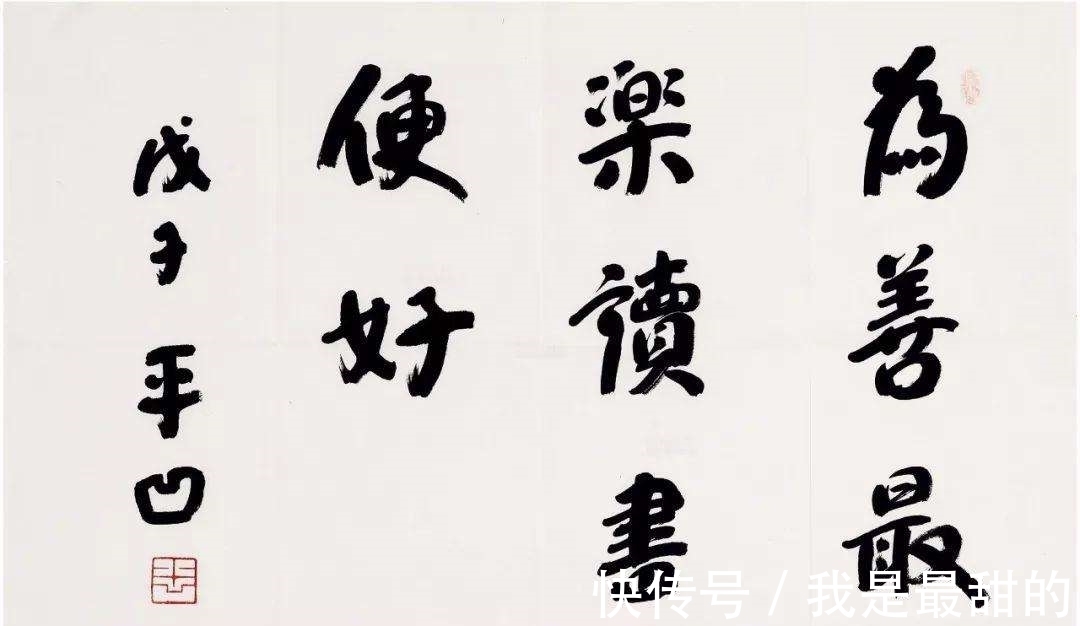 為善最
楽讀書
便好
戊子平凹
快传号 / 我是最甜的